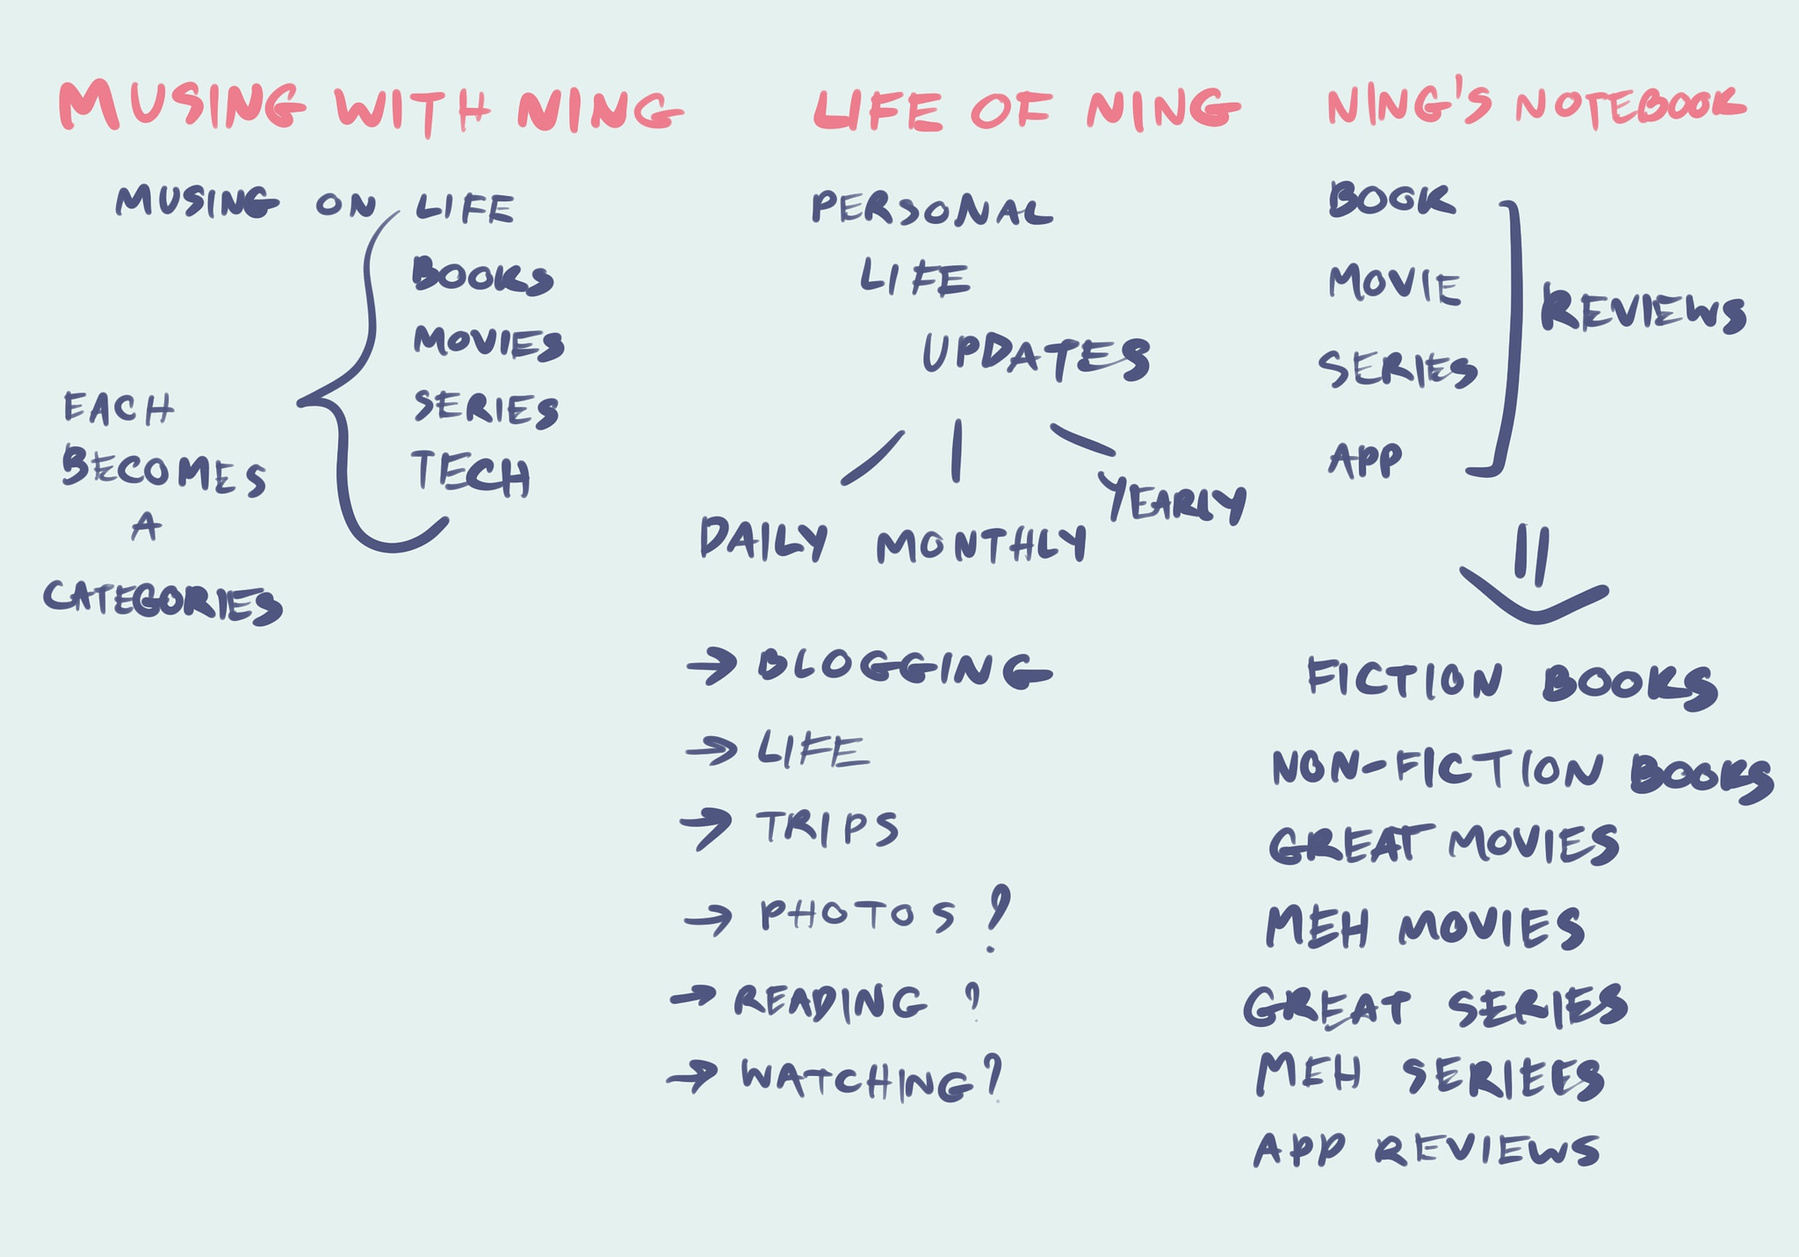 MUSING WITH NING
MUSING ON LIFE
BOOKS
MOVIES
SERIES
TECH
EACH
BECOMES
A
CATEGORIES
LIFE OF NING
PERSONAL
LIFE
UPDATES
DAILY MONTHLY YEARLY
→ BLOGGING
→ LIFE
→ TRIPS
→ PHOTOS ?
→ READING ?
→ WATCHING ?
NING'S NOTEBOOK
BOOK
MOVIE
SERIES
APP
REVIEWS
FICTION BOOKS
NON-FICTION BOOKS
GREAT MOVIES
MEH MOVIES
GREAT SERIES
MEH SERIEES
APP REVIEWS